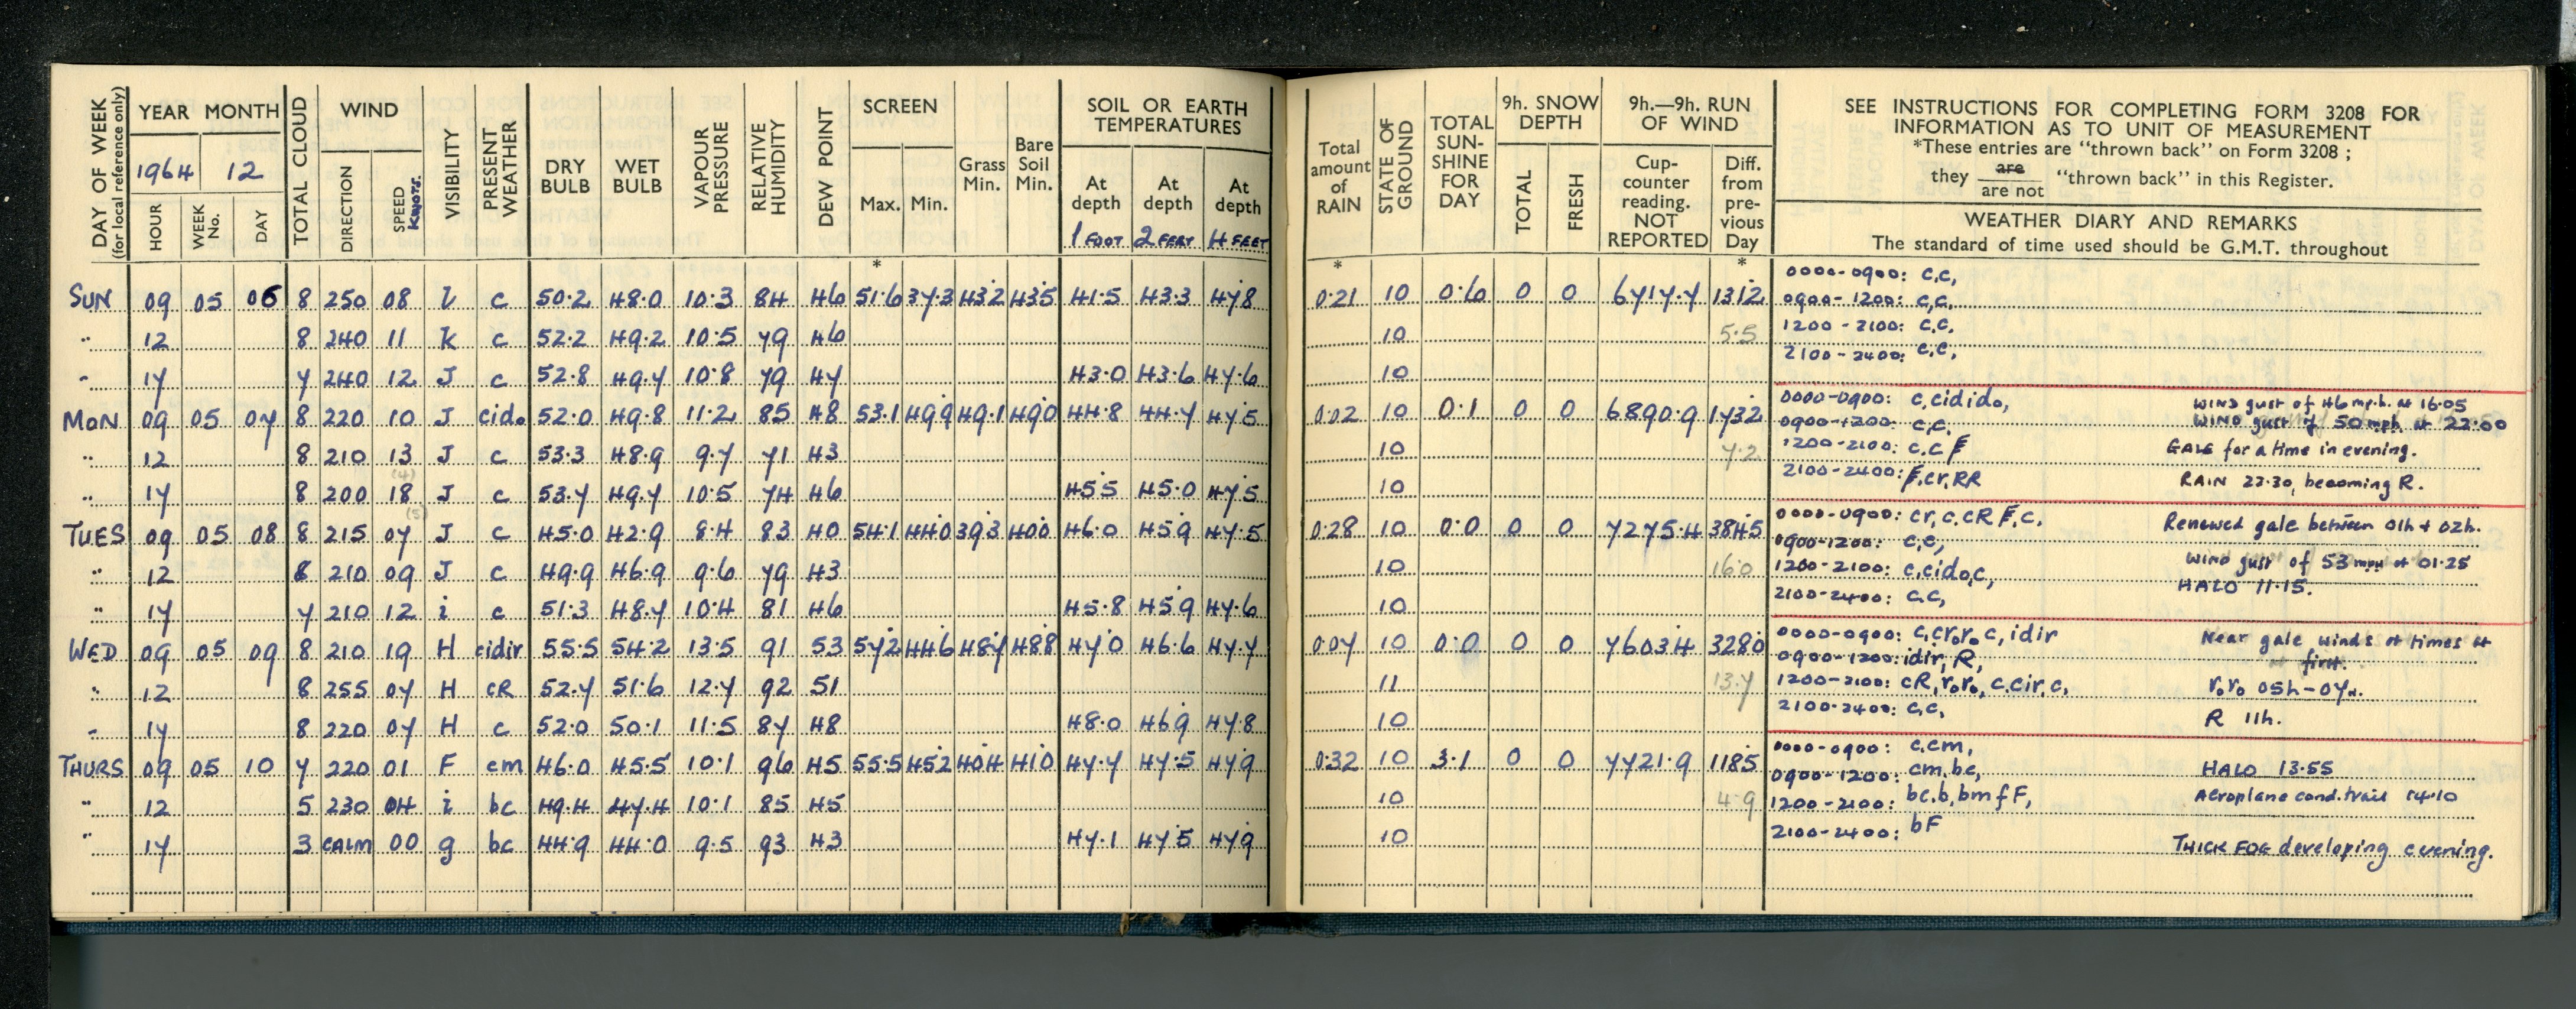 DAY OF WEEK
(for local reference only)
YEAR MONTH
1964 12
HOUR
WEEK No.
DAY
TOTAL CLOUD
WIND
DIRECTION
SPEED
KNOTS.
VISIBILITY
PRESENT WEATHER
DRY BULB
WET BULB
VAPOUR PRESSURE
RELATIVE HUMIDITY
DEW POINT
SCREEN
Max. Min.
Grass Min.
Bare Soil Min.
SOIL OR EARTH
TEMPERATURES
At depth At depth At depth
1 FOOT 2 FEET 4 FEET
*
SUN 09 05 06 8 250 08 l c 50.2 48.0 10.3 84 46 51.6 37.3 43.2 43.5 41.5 43.3 47.8
" 12 8 240 11 k c 52.2 49.2 10.5 79 46
" 17 7 240 12 J c 52.8 49.7 10.8 79 47 43.0 43.6 47.6
MON 09 05 07 8 220 10 J cido 52.0 49.8 11.2 85 48 53.1 49.9 49.1 49.0 44.8 44.7 47.5
" 12 8 210 13 J c 53.3 48.9 9.7 71 43
(4)
" 17 8 200 18 J c 53.7 49.7 10.5 74 46 45.5 45.0 47.5
(5)
TUES 09 05 08 8 215 07 J c 45.0 42.9 8.4 83 40 54.1 44.0 39.3 40.0 46.0 45.9 47.5
" 12 8 210 09 J c 49.9 46.9 9.6 79 43
" 17 7 210 12 i c 51.3 48.7 10.4 81 46 45.8 45.9 47.6
WED 09 05 09 8 210 19 H cidir 55.5 54.2 13.5 91 53 57.2 44.6 48.7 48.8 47.0 46.6 47.7
" 12 8 255 07 H cR 52.7 51.6 12.7 92 51
" 17 8 220 07 H c 52.0 50.1 11.5 87 48 48.0 46.9 47.8
THURS 09 05 10 7 220 01 F cm 46.0 45.5 10.1 96 45 55.5 45.2 40.4 41.0 47.7 47.5 47.9
" 12 5 230 04 i bc 49.4 47.4 10.1 85 45
" 17 3 CALM 00 g bc 44.9 44.0 9.5 93 43 47.1 47.5 47.9
Total amount of RAIN
STATE OF GROUND
TOTAL SUN-SHINE FOR DAY
9h. SNOW DEPTH
TOTAL
FRESH
9h.—9h. RUN OF WIND
Cup-counter reading. NOT REPORTED
Diff. from pre-vious Day
SEE INSTRUCTIONS FOR COMPLETING FORM 3208 FOR
INFORMATION AS TO UNIT OF MEASUREMENT
*These entries are "thrown back" on Form 3208 ;
they are / are not "thrown back" in this Register.
WEATHER DIARY AND REMARKS
The standard of time used should be G.M.T. throughout
* *
0.21 10 0.6 0 0 6717.7 131.2
10 5.5
10
0000-0900: c,c,
0900-1200: c,c,
1200-2100: c,c,
2100-2400: c,c,
0.02 10 0.1 0 0 6890.9 173.2
10 7.2
10
0000-0900: c,cidido, WIND gust of 46 mph. at 16.05
0900-1200: c,c, WIND gust of 50 mph at 22.00
1200-2100: c,c F GALE for a time in evening.
2100-2400: F,cr,RR RAIN 22.30, becoming R.
0.28 10 0.0 0 0 7275.4 384.5
10 16.0
10
0000-0900: cr,c,cR F,c, Renewed gale between 01h + 02h.
0900-1200: c,c, WIND gust of 53 mph at 01.25
1200-2100: c,cido,c, HALO 11.15.
2100-2400: c,c,
0.07 10 0.0 0 0 7603.4 328.0
11 13.7
10
0000-0900: c,cror.o c, idir Near gale winds at times at
0900-1200: idir, R, first.
1200-2100: cR,roro, c,cir,c, roro 05h-07h.
2100-2400: c,c, R 11h.
0.32 10 3.1 0 0 7721.9 118.5
10 4.9
10
0000-0900: c,cm,
0900-1200: cm,bc, HALO 13.55
1200-2100: bc,b,bm f F, Aeroplane cond. trail 14.10
2100-2400: bF
THICK FOG developing evening.